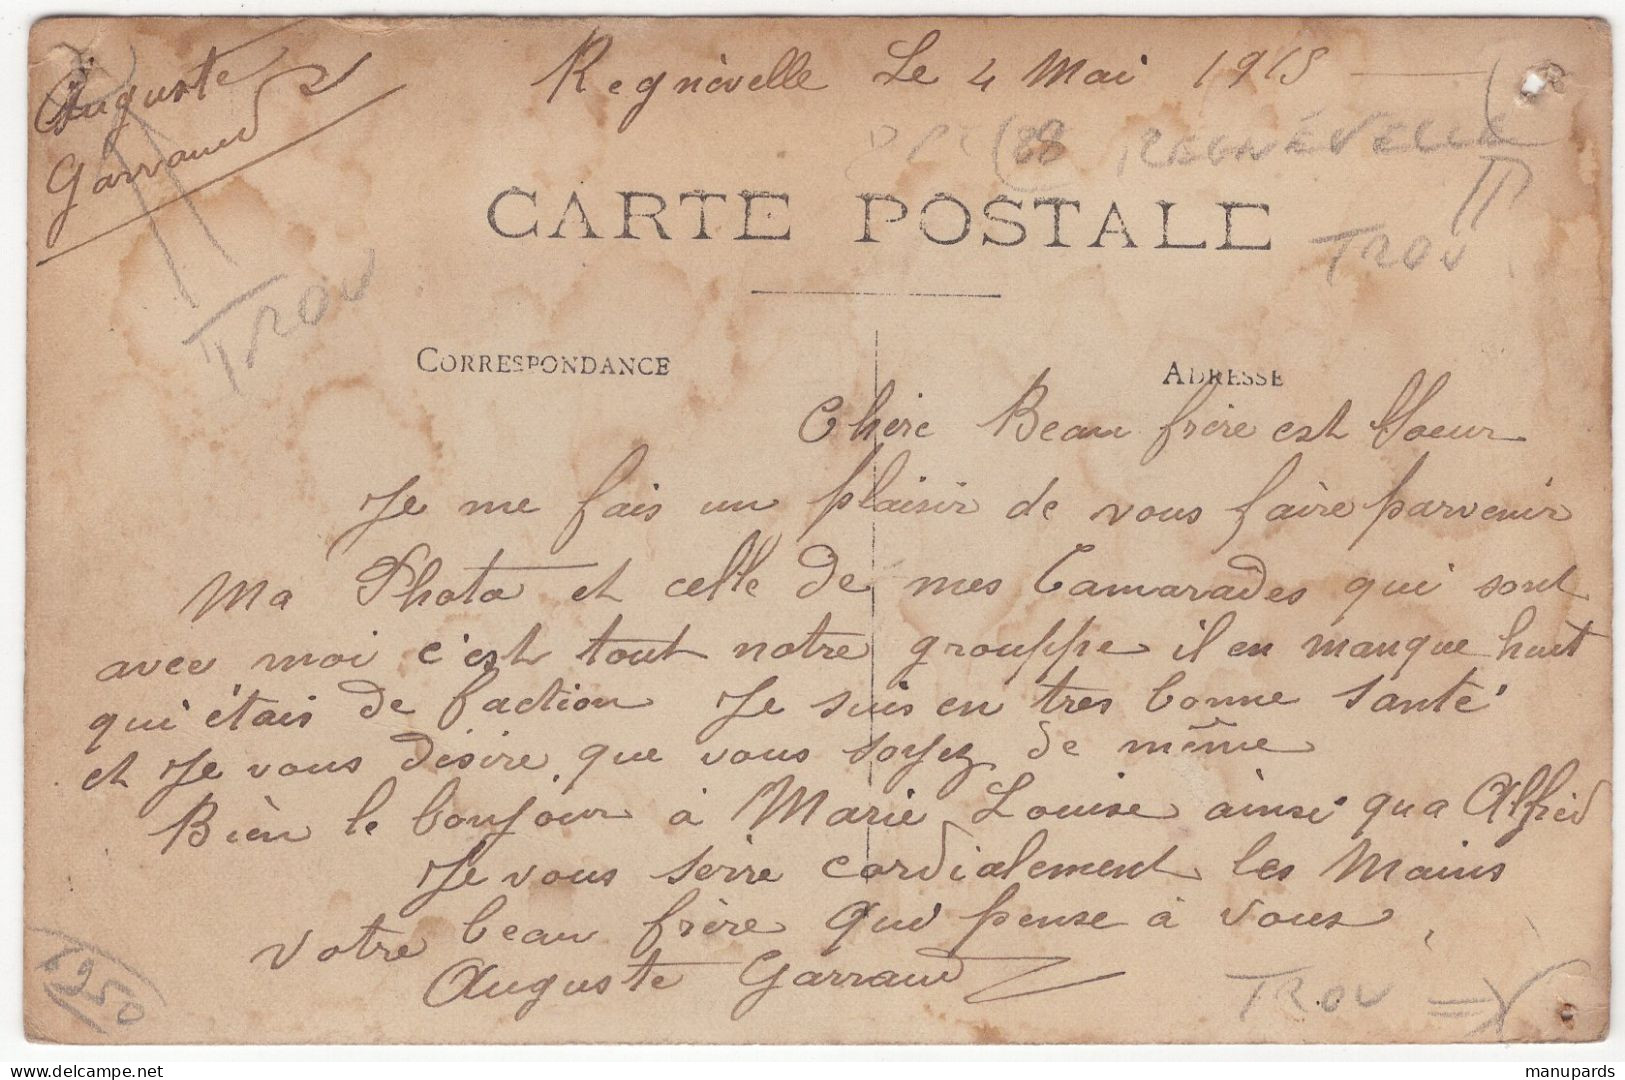 Auguste
Garraud
Regnévelle Le 4 Mai 1915
(88 REGNÉVELLE)
TROU
TROU
CARTE POSTALE
CORRESPONDANCE
ADRESSE
Chère Beau frère est Soeur
Je me fais un plaisir de vous faire parvenir
Ma Photo et celle de mes Camarades qui sont
avec moi c'est tout notre grouppe il en manque huit
qui étais de faction Je suis en tres bonne Santé
et Je vous désire que vous soyez de même
Bien le bonjour à Marie Louise ainsi qu a Alfred
Je vous serre cordialement les Mains
votre beau frère qui pense à vous
Auguste Garraud
1950
TROU
manupards